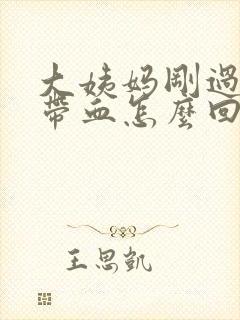 大姨妈剛過
帶血怎麽回
王思凱